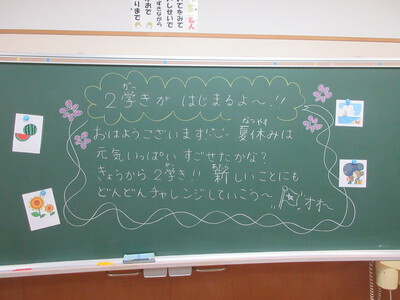 2学きが はじまるよ～!!
おはようございます!! 夏休みは
元気いっぱい すごせたかな？
きょうから 2学き!! 新しいことにも
どんどんチャレンジしていこう～ オオ～